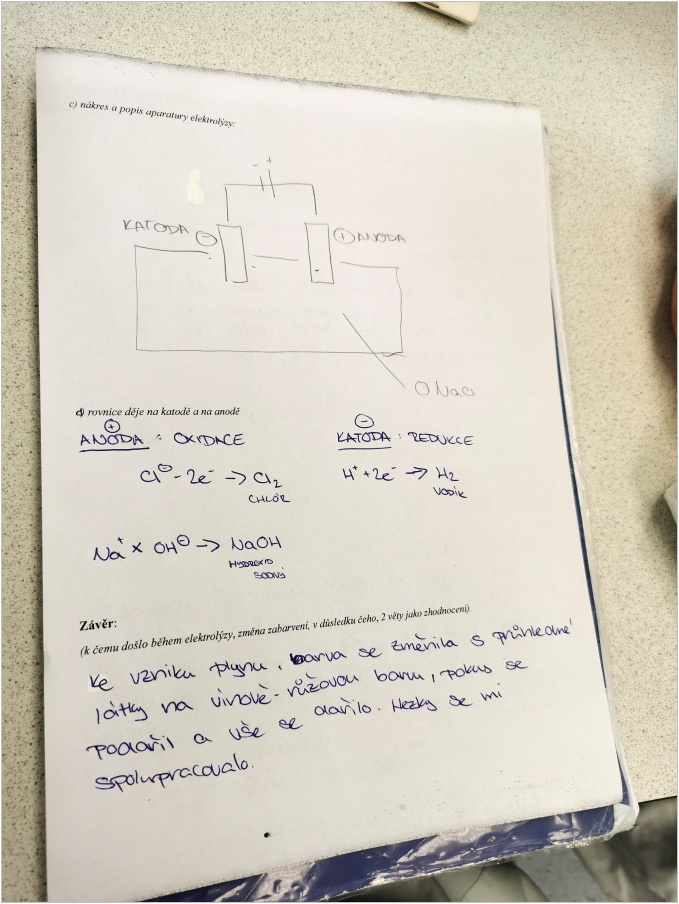 c) nákres a popis aparatury elektrolýzy:
- +
KATODA - + ANODA
O NaCl
d) rovnice děje na katodě a na anodě
+ -
ANODA : OXIDACE KATODA : REDUKCE
Cl⊖ - 2e⁻ → Cl₂ H⁺ + 2e⁻ → H₂
CHLÓR VODÍK
Na⁺ x OH⊖ → NaOH
HYDROXID
SODNÝ
Závěr:
(k čemu došlo během elektrolýzy, změna zabarvení, v důsledku čeho, 2 věty jako zhodnocení)
Ke vzniku plynu, barva se změnila s průhledné
látky na vínově-růžovou barvu, pokus se
podařil a vše se dařilo. Hezky se mi
spolupracovalo.